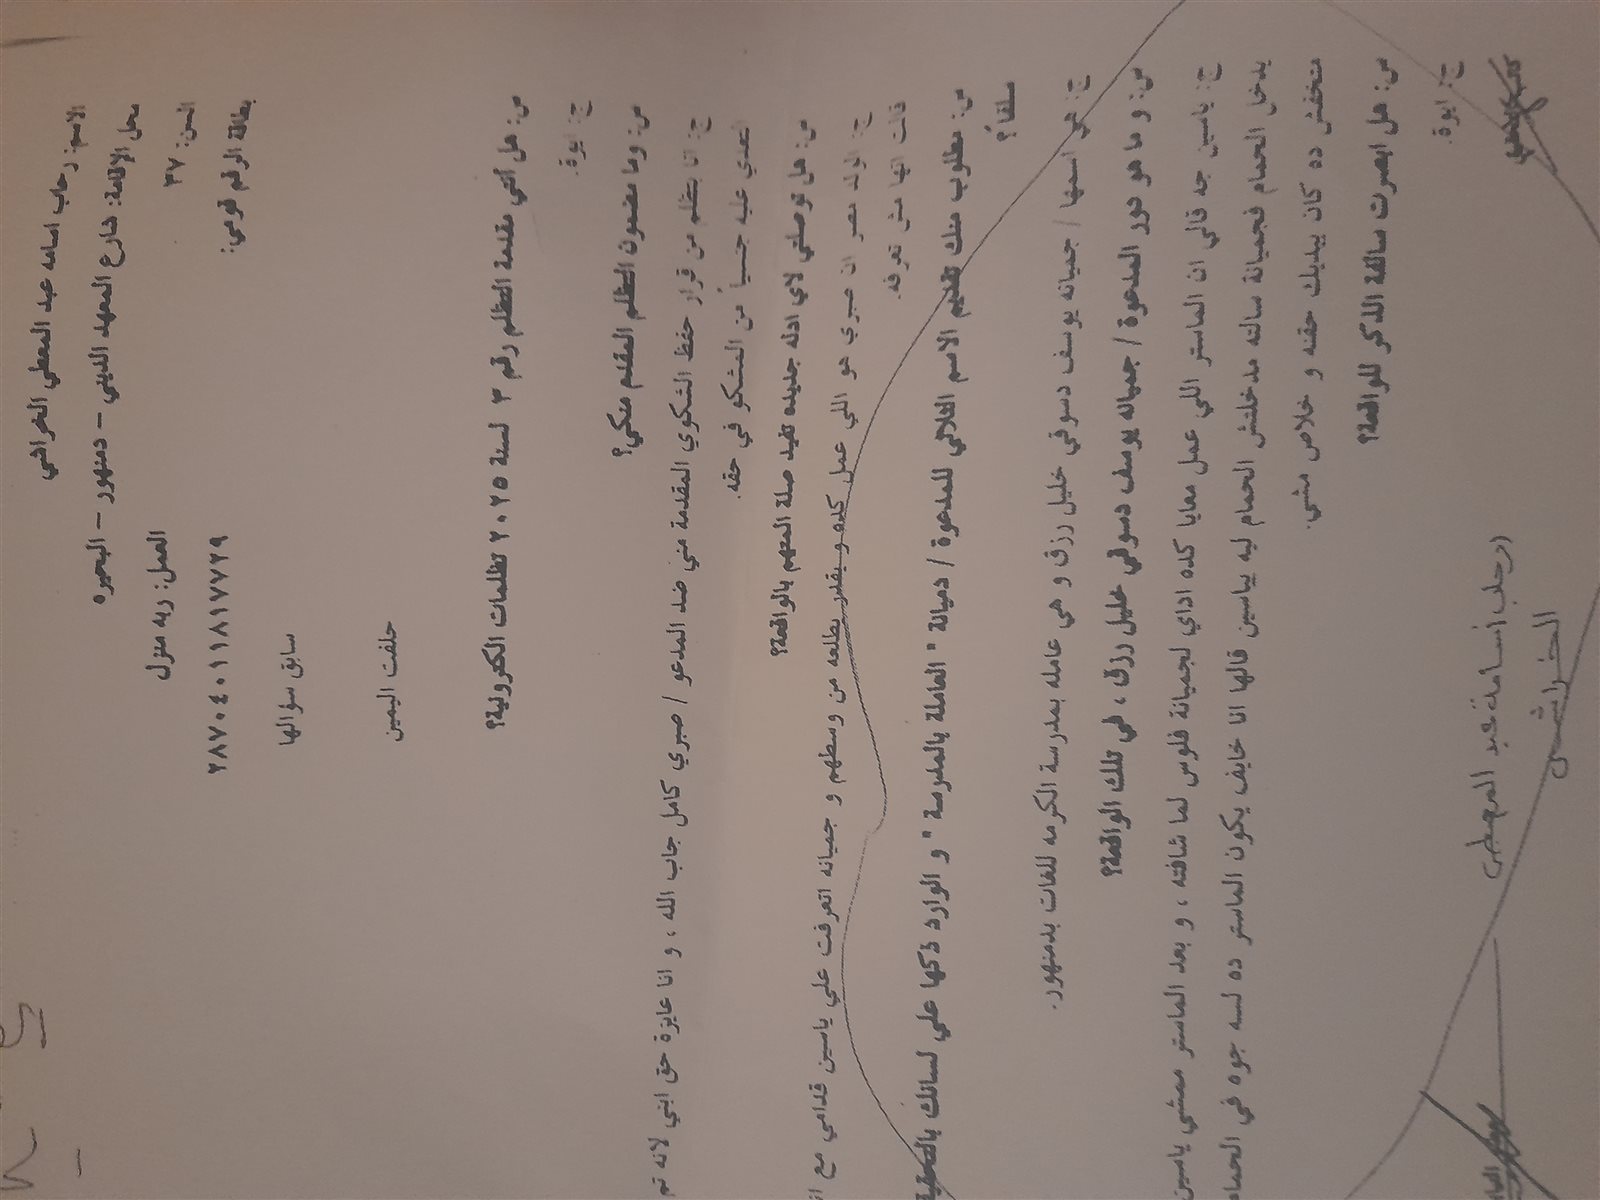 الاسم: رحاب اسامه عبد المعطي الخراشي
محل الإقامة: شارع المعهد الديني – دمنهور – البحيره
السن: ٣٧ العمل: ربه منزل
بطاقة الرقم قومي: ٢٨٧٠٤٠١١٨١٧٧٢٩
سابق سؤالها
حلفت اليمين
س: هل أنتي مقدمة التظلم رقم ٣ لسنة ٢٠٢٥ تظلمات الكترونية؟
ج: ايوة.
س: وما مضمون التظلم المقدم منكي؟
ج: انا بتظلم من قرار حفظ الشكوي المقدمة مني ضد المدعو / صبري كامل جاب الله ، و انا عايزة حق ابني لانه تم
التعدي عليه جنسياً من المشكو في حقه.
س: هل توصلتي لاي ادله جديده تفيد صلة المتهم بالواقعة؟
ج: الولد مصر ان صبري هو اللي عمل كده و بقدر يطلعه من وسطهم و جميانه اتعرفت علي ياسين قدامي مع
قالت انها مش تعرفه.
س: مطلوب منك تقديم الاسم الثلاثي للمدعوة / دميانة " العاملة بالمدرسة " و الوارد ذكرها علي لسانك بالتحقيق
سلفاً؟
ج: هي اسمها / جميانه يوسف دسوقي خليل رزق و هي عامله بمدرسة الكرمه للغات بدمنهور.
س: و ما هو دور المدعوة / جميانه يوسف دسوقي خليل رزق ، في تلك الواقعة؟
ج: ياسين جه قالي ان الماستر اللي عمل معايا كده اداي لجميانة فلوس لما شافته ، و بعد الماستر ممشي ياسين
يدخل الحمام فجميانة سالته مدخلتش الحمام ليه يياسين قالها انا خايف يكون الماستر ده لسه جوه في الحمام
متخفش ده كان بيديك حقنه و خلاص مشي.
س: هل ابصرت سالفة الذكر للواقعة؟
ج: ايوة.
رحاب أسامة عبد المعطي
الخراشي